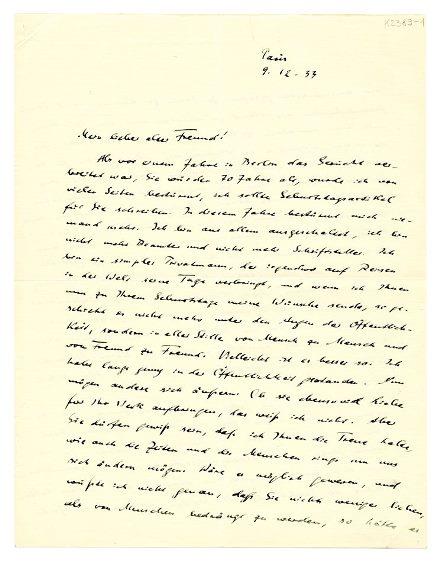 K2363-1
Paris
9. 12. 33
Mein lieber alter Freund!
Als vor einem Jahre in Berlin das Gerücht ver-
breitet war, Sie würden 70 Jahre alt, wurde ich von
vielen Seiten bestürmt, ich sollte Geburtstagsartikel
für Sie schreiben. In diesem Jahre bestürmt mich nie-
mand mehr. Ich bin aus allem ausgeschaltet, ich bin
nicht mehr Beamter und nicht mehr Schriftsteller. Ich
bin ein simpler Privatmann, der irgendwo auf Reisen
in der Welt seine Tage verbringt, und wenn ich Ihnen
nun zu Ihrem Geburtstage meine Wünsche sende, so ge-
schieht es nicht mehr unter den Augen der Öffentlich-
keit, sondern in aller Stille von Mensch zu Mensch und
von Freund zu Freund. Vielleicht ist es besser so. Ich
habe lange genug in der Öffentlichkeit gestanden. Nun
mögen andere sich äußern. Ob sie ebensoviel Liebe
für Ihr Werk aufbringen, das weiß ich nicht. Aber
Sie dürfen gewiß sein, daß ich Ihnen die Treue halte
wie auch die Zeiten und die Menschen rings um uns
sich ändern mögen. Wäre es möglich gewesen, und
wüßte ich nicht genau, daß Sie nichts weniger lieben,
als von Menschen bedrängt zu werden, so hätte es